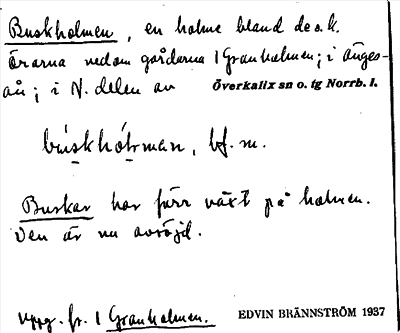 Buskholmen, en holme bland de s.k.
örarna nedom gårdarna i Granholmen; i Änges-
ån; i N. delen av Överkalix sn o. tg Norrb. l.
búskhólman, bf. m.
Buskar har förr växt på holmen.
Den är nu avröjd.
Uppg. fr. i Granholmen.
EDVIN BRÄNNSTRÖM 1937